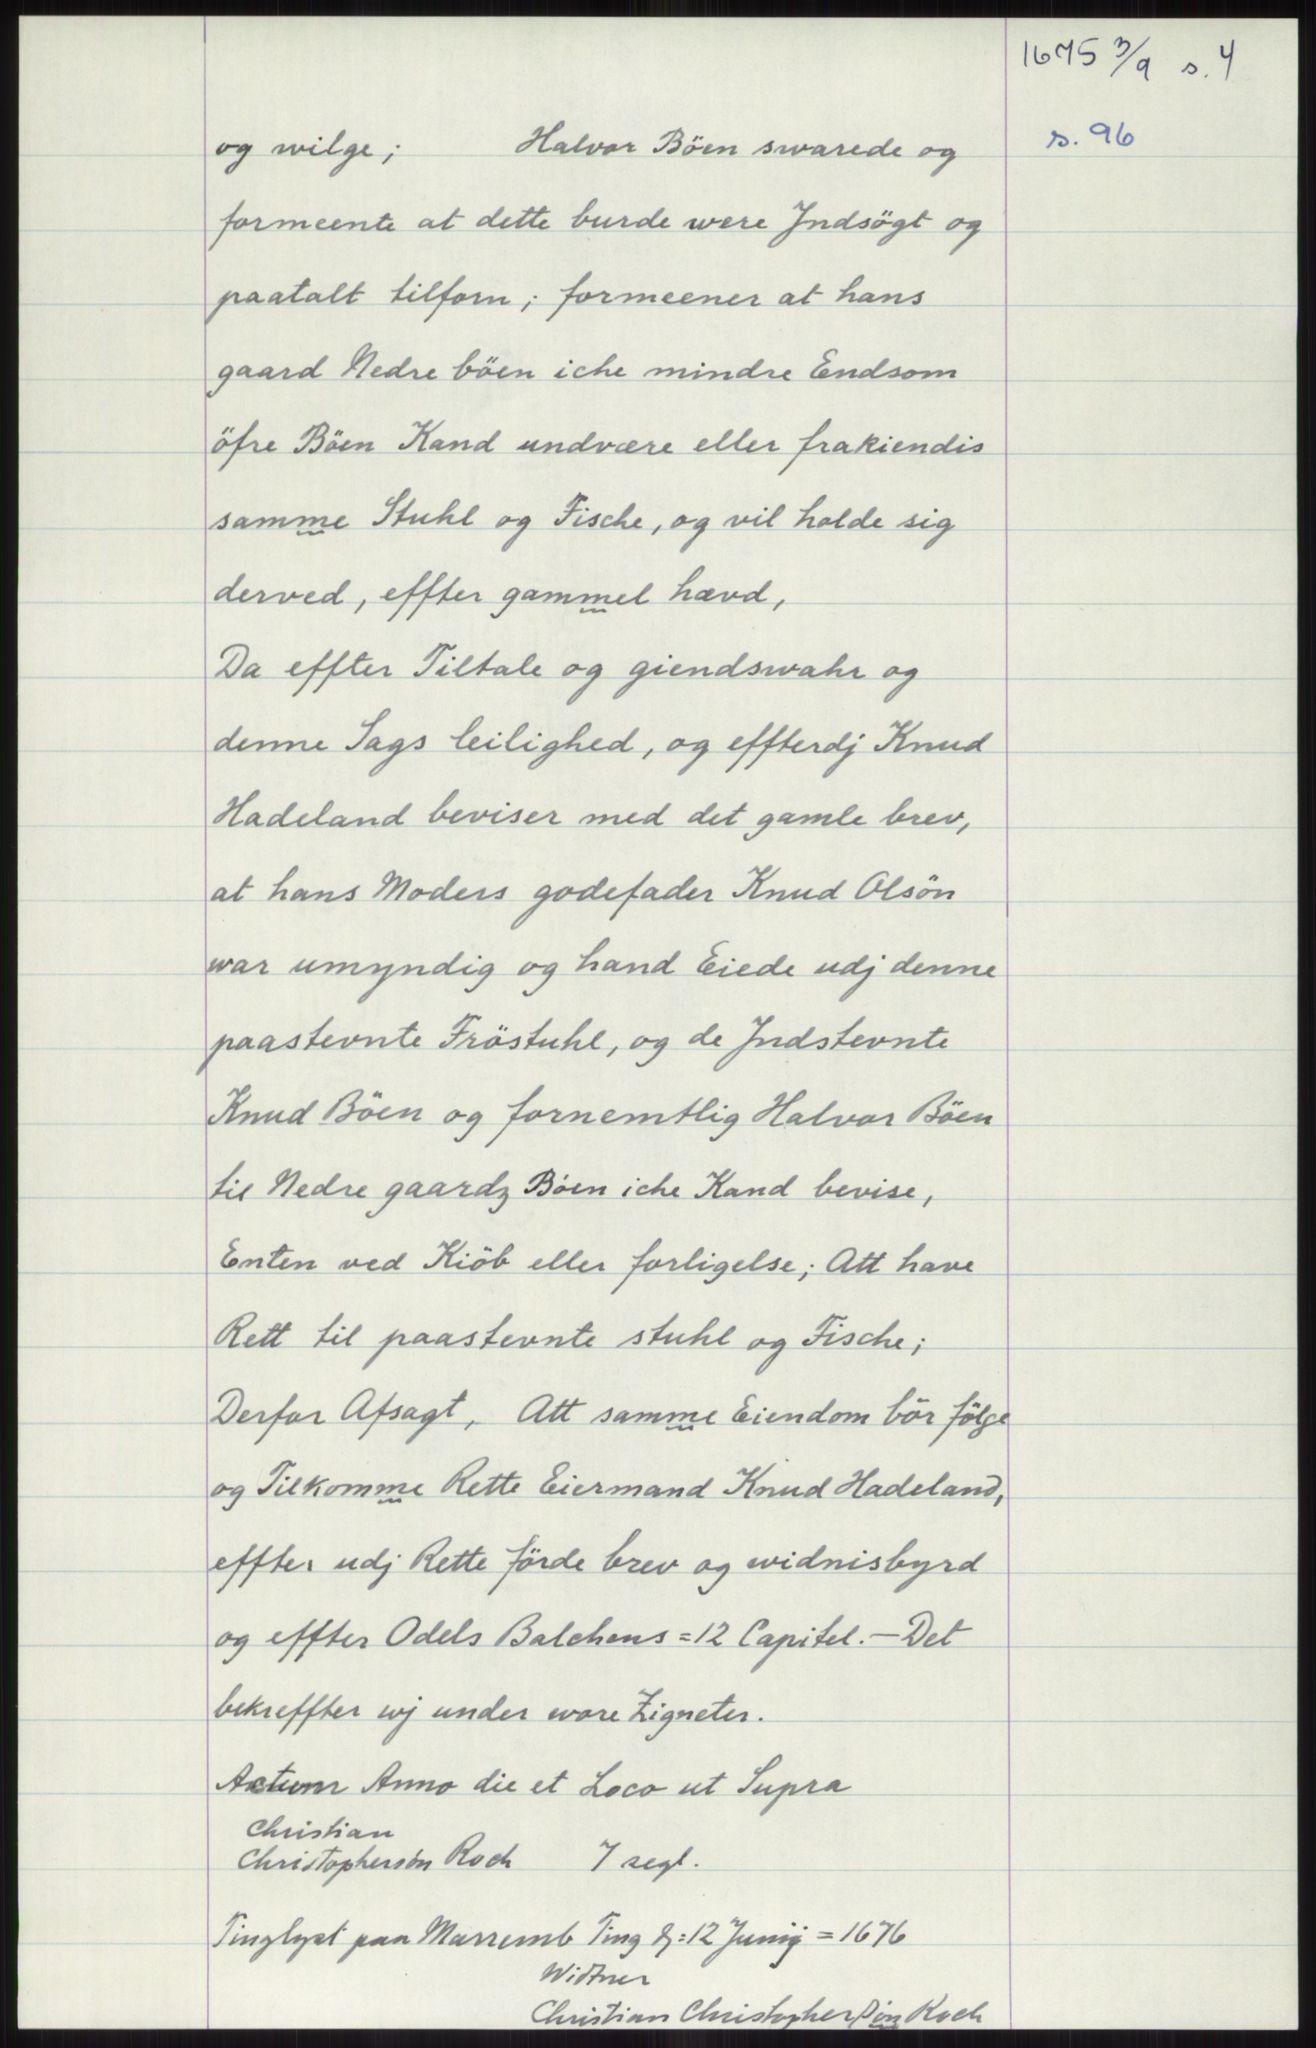 1675 3/9 s. 4
s. 96
og wilge; Halvor Böen swarede og
formeente at dette burde were Jndsögt og
paatalt tilforn; formeener at hans
gaard Nedre böen iche mindre Endsom
öfre Böen Kand undvære eller frakiendis
samme Stuhl og Fische, og vil holde sig
derved, effter gammel hævd,
Da effter Tiltale og giendswahr og
denne Sags leilighed, og effterdj Knud
Hadeland beviser med det gamle brev,
at hans Moders godefader Knud Olsön
war umyndig og hand Eiede udj denne
paastevnte Fröstuhl, og de Jndstevnte
Knud Böen og fornemtlig Halvor Böen
til Nedre gaardz Böen iche Kand bevise,
Enten ved Kiöb eller forligelse; Att have
Rett til paastevnte stuhl og Fische;
Derfor Afsagt, Att samme Eiendom bör fölge
og Tilkomme Rette Eiermand Knud Hadeland,
effter udj Rette förde brev og widnisbyrd
og effter Odels Balchens =12 Capitel.— Det
bekreffter wj under wore Zigneter.
Actum Anno die et Loco ut Supra
Christian
Christophersön Roch 7 segl.
Tinglyst paa Marremb Ting d: 12 Junij = 1676
Widtner
Christian Christopherßön Roch